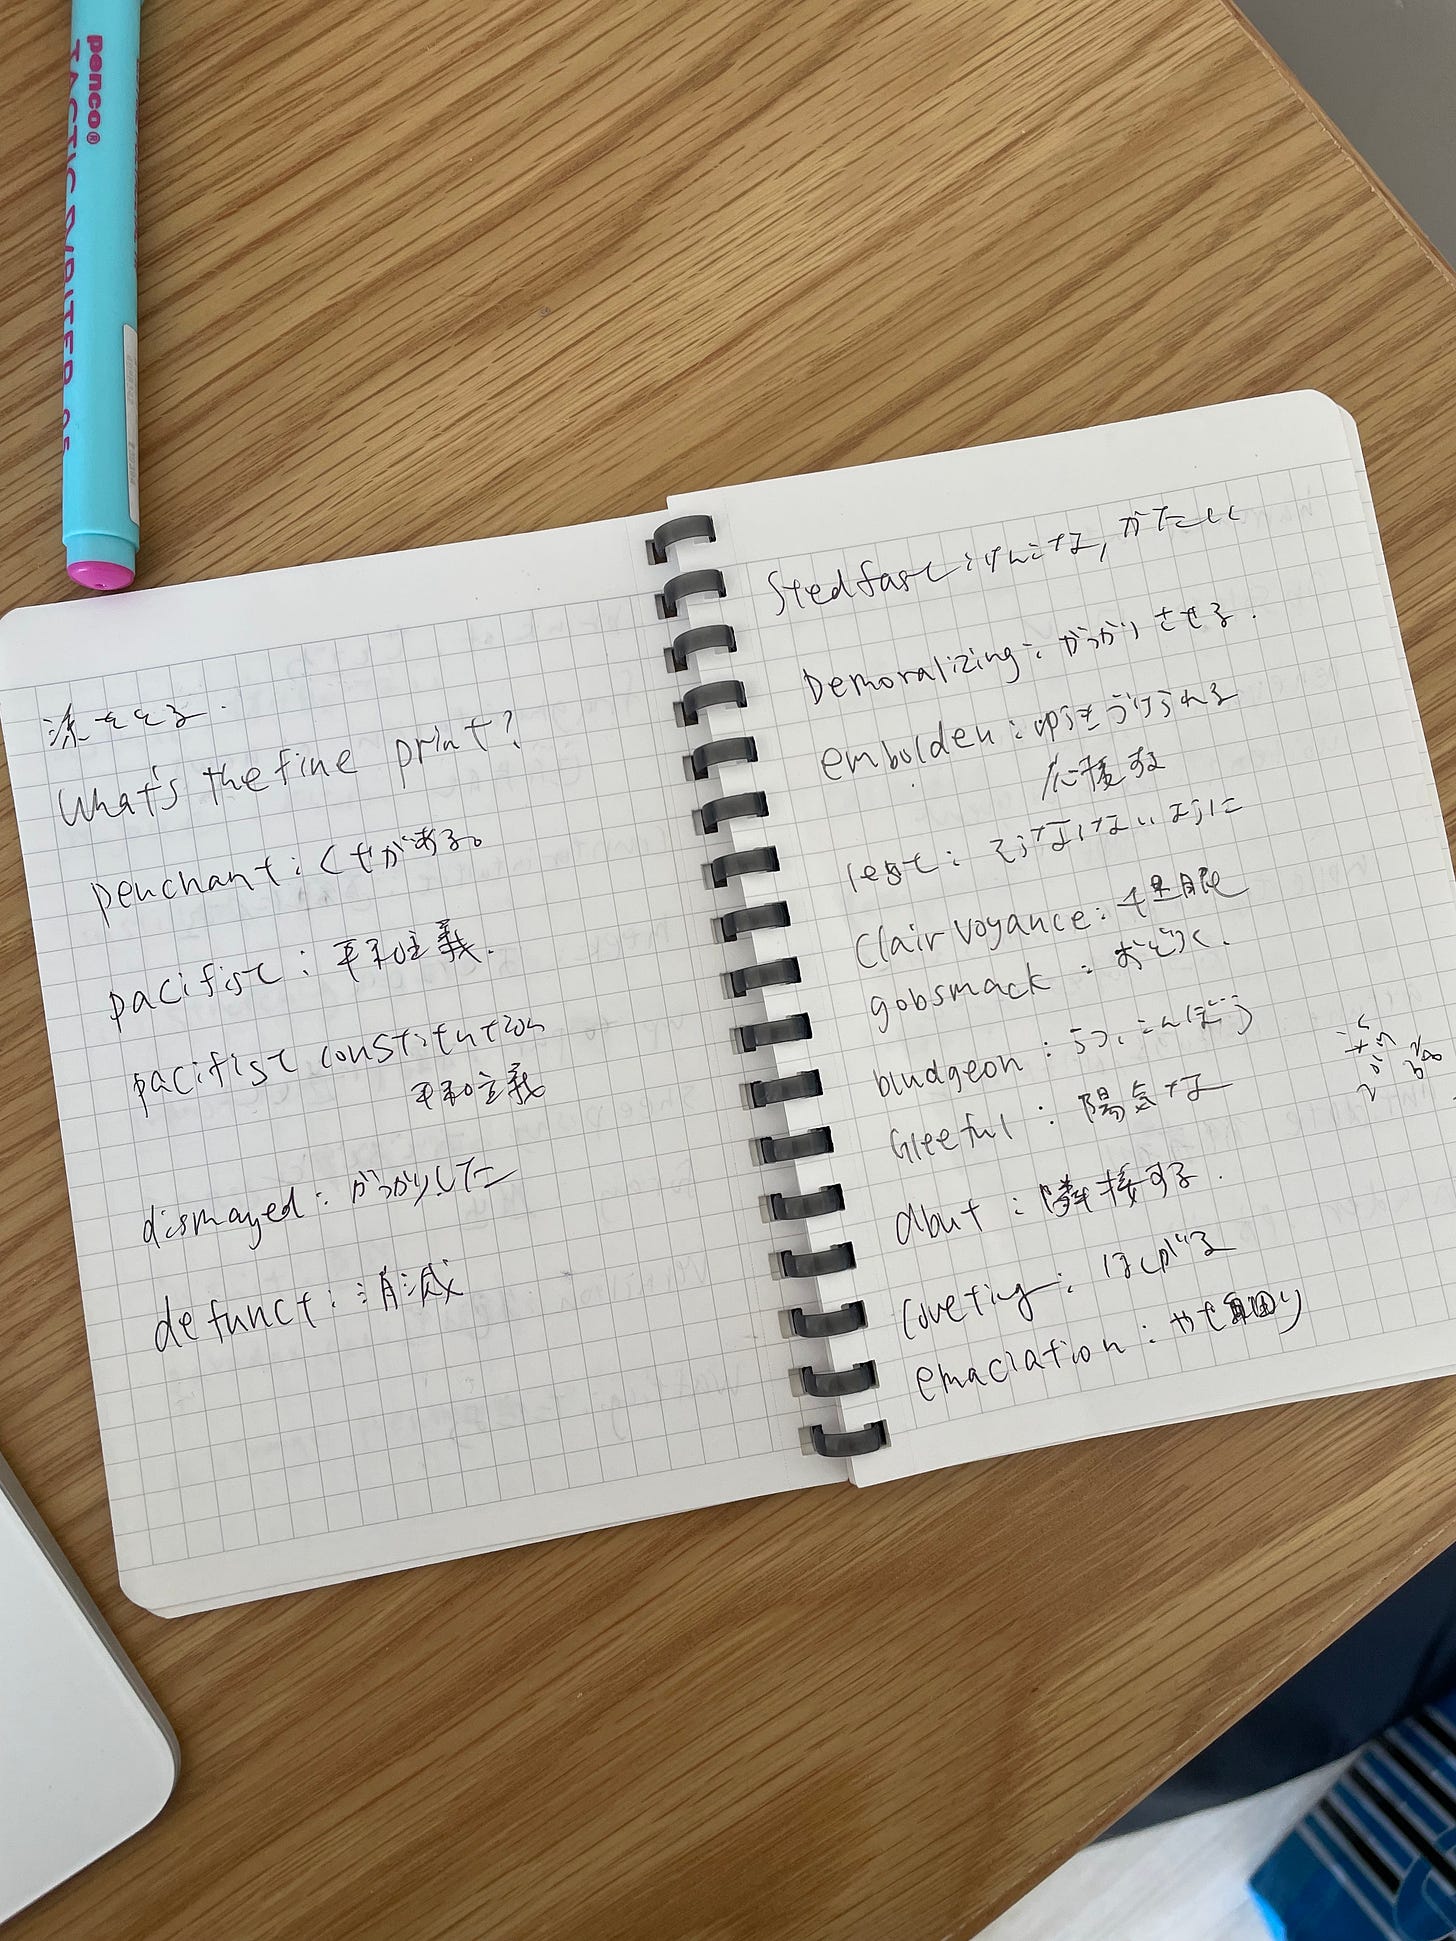 penco®
TACTIC RYRITER 05
をとる.
What's the fine print?
penchant: くせがある。
pacifist: 平和主義.
pacifist constitution
平和主義
dismayed: がっかりした
defunct: 消滅
Stedfast: けんごな, かたい
Demoralizing: がっかりさせる.
embolden: ゆうきづけられる
応援する
lest: そうなけないように
Clairvoyance: 千里眼
gobsmack: おどろく.
bludgeon: うつ, こんぼう
Gleeful: 陽気な
abut: 隣接する.
Coveting: ほしがる
emaciation: やせ細り